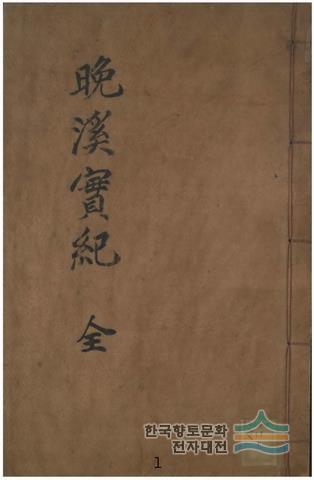 晩溪實紀 全
한국향토문화
전자대전
1